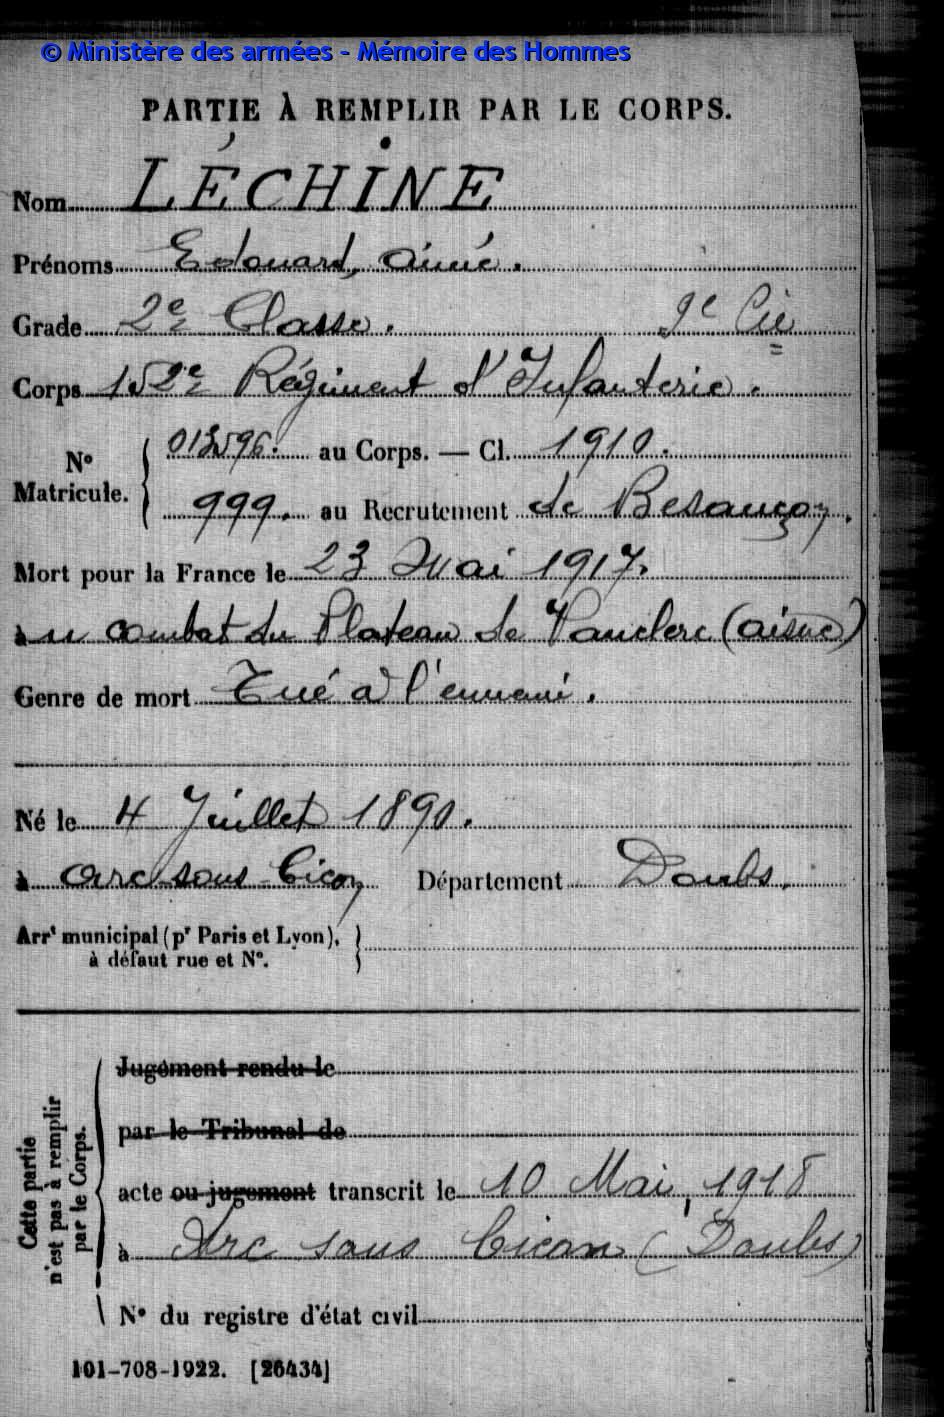 © Ministère des armées - Mémoire des Hommes
PARTIE À REMPLIR PAR LE CORPS.
Nom LÉCHINE
Prénoms Edouard, aimé.
Grade 2e Classe. 9e Cie
Corps 152e Régiment d'Infanterie.
N° Matricule. { 013596. au Corps. — Cl. 1910.
999. au Recrutement de Besançon.
Mort pour la France le 23 Mai 1917.
au combat du Plateau de Vauclerc (aisne)
Genre de mort Tué à l'ennemi.
Né le 4 Juillet 1890.
à Arc-sous-Cicon Département Doubs.
Arrt municipal (pr Paris et Lyon), }
à défaut rue et N°.
Cette partie
n'est pas à remplir
par le Corps.
Jugement rendu le
par le Tribunal de
acte ou jugement transcrit le 10 Mai 1918
à Arc sous Cicon (Doubs)
N° du registre d'état civil
101-708-1922. [26434]